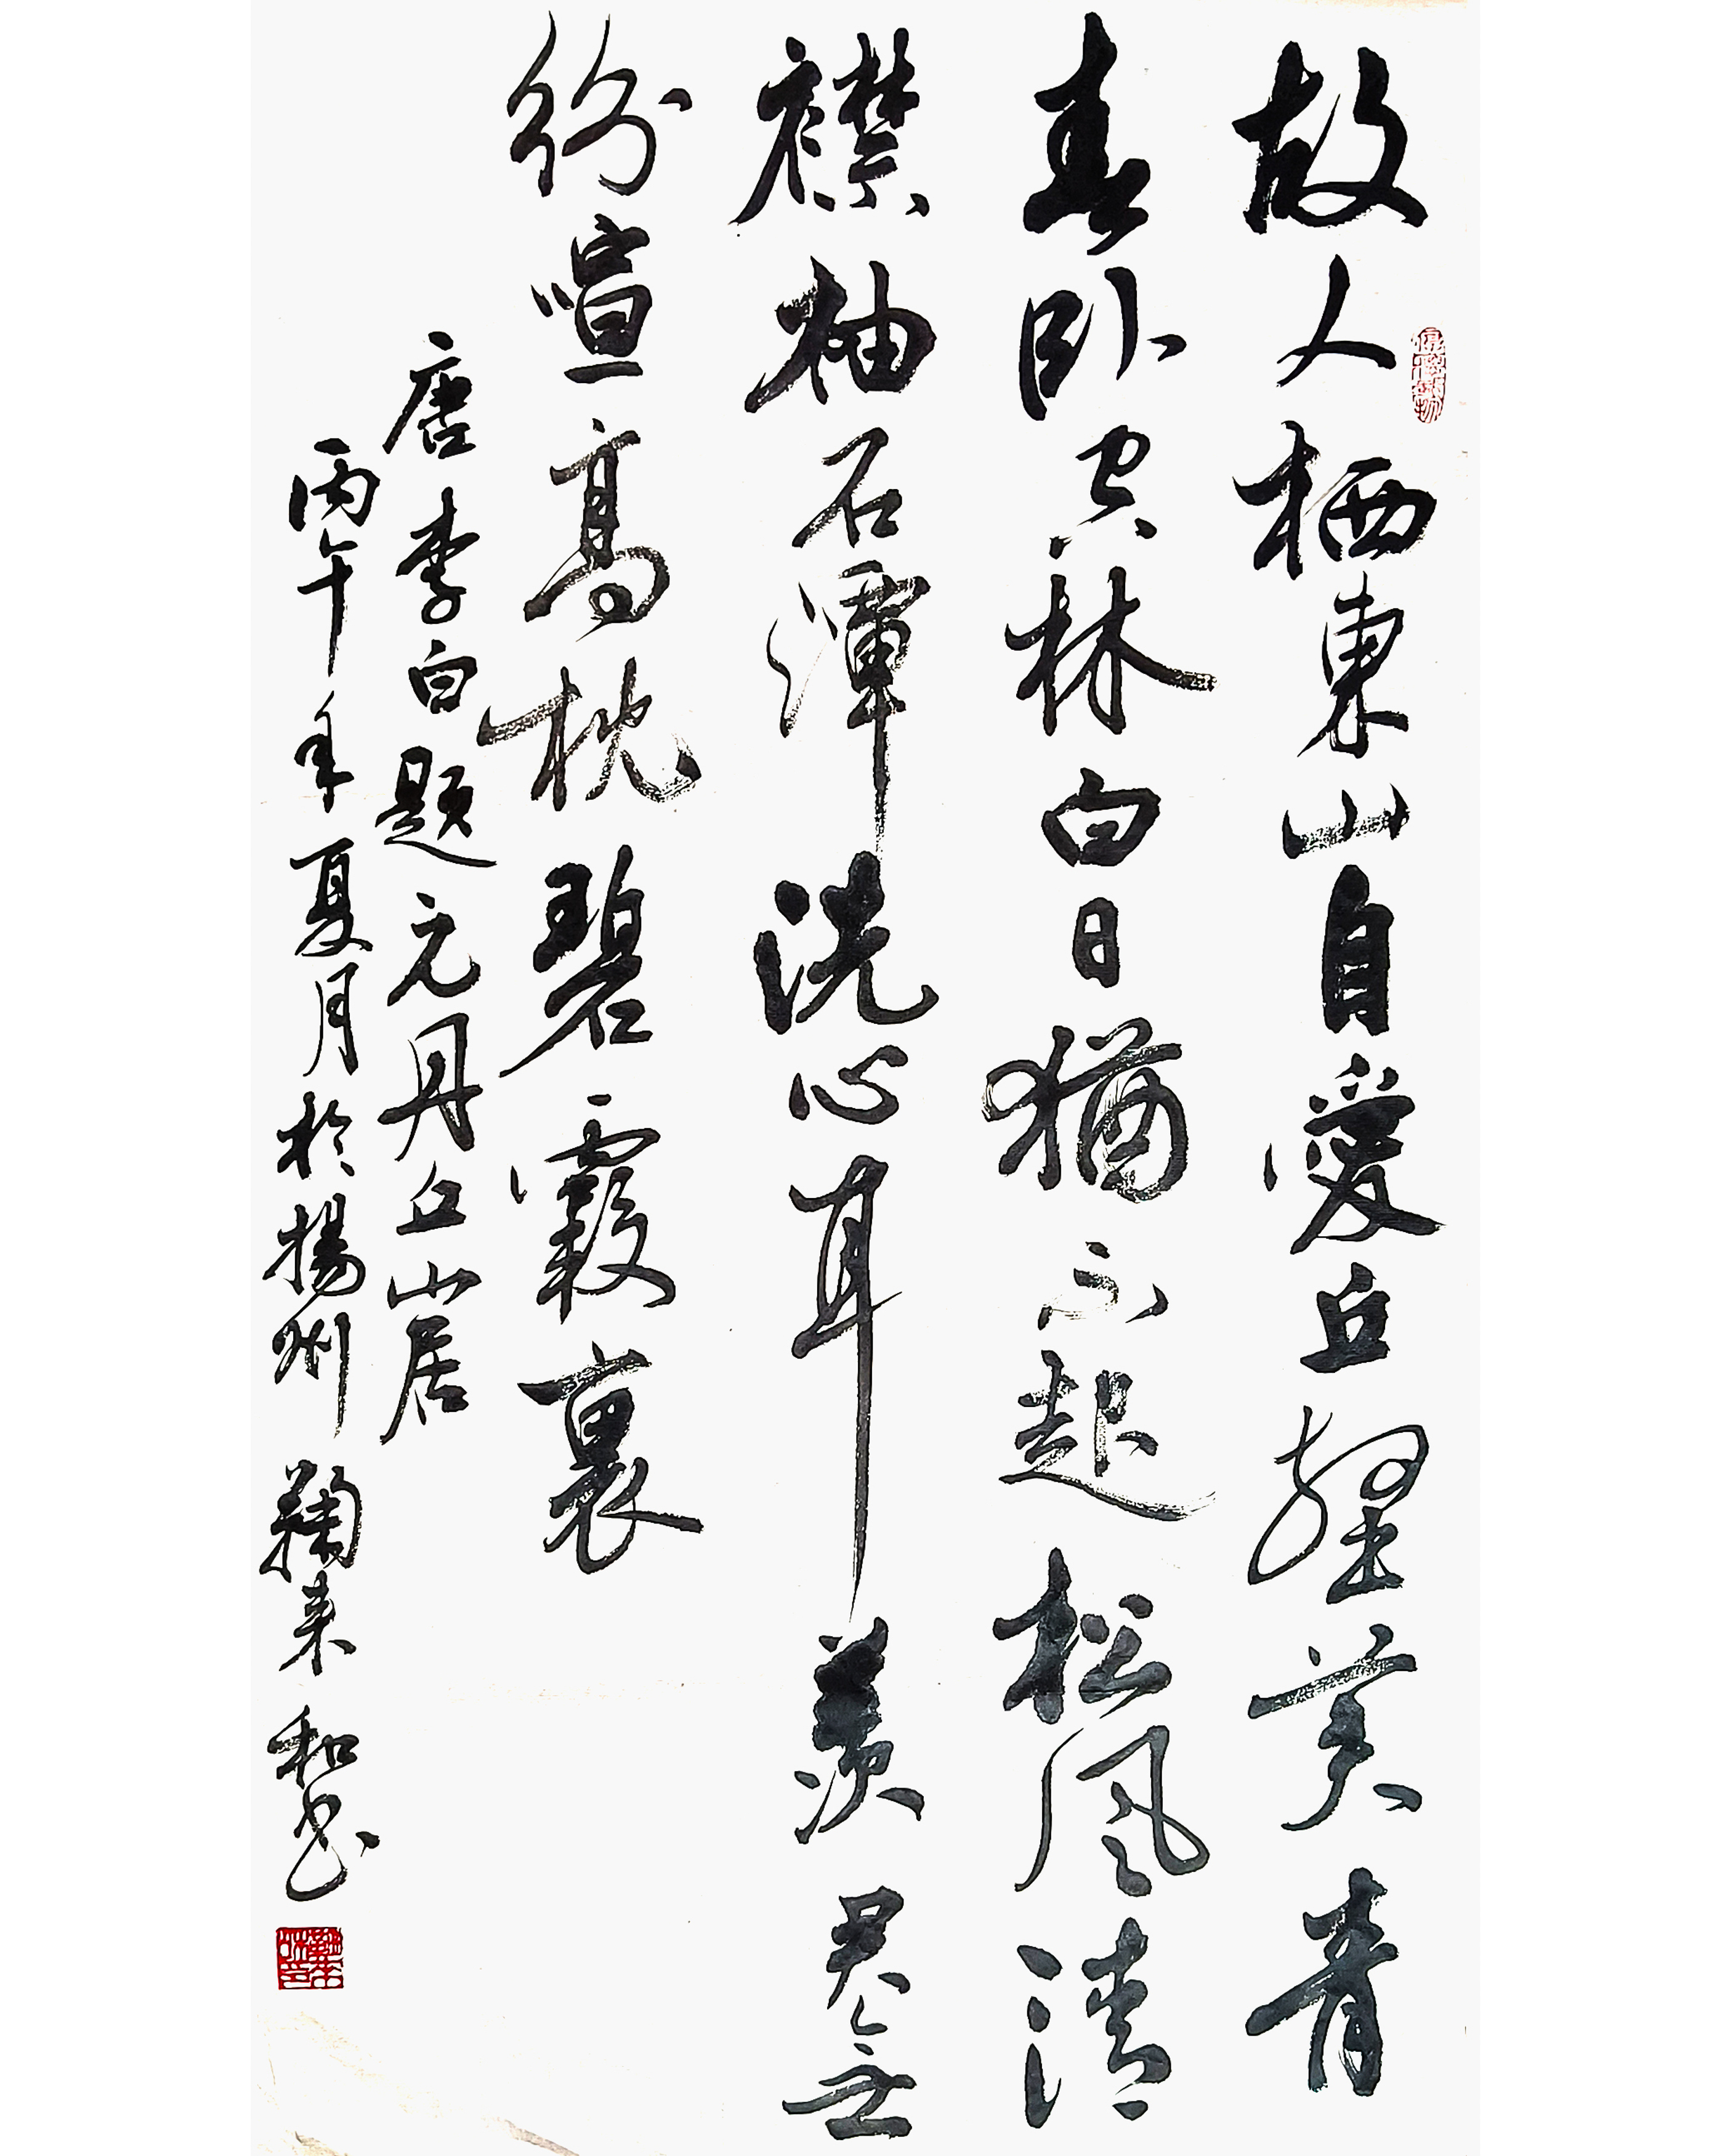 故人栖東山自愛丘壑美青
春卧空林白日猶不起松風清
襟袖石潭洗心耳羨君無
紛喧高枕碧霞裏
唐李白題元丹丘山居
丙午年夏月於揚州鞠来和书